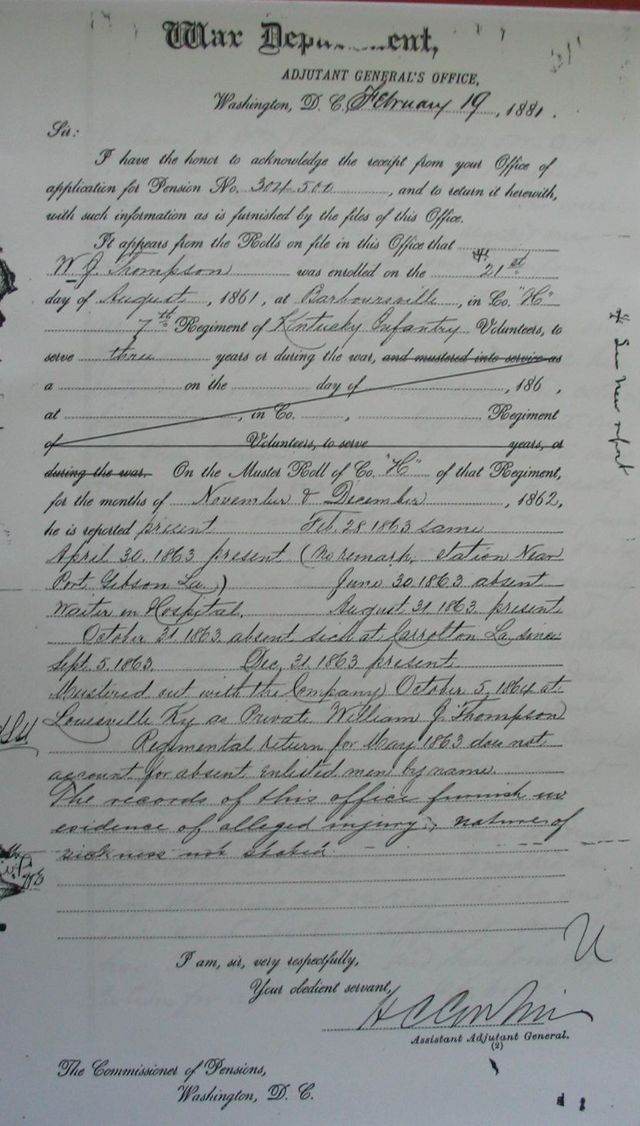 War Dep    ent,
ADJUTANT GENERAL'S OFFICE,
Washington, D. C., February 19, 1881.
Sir:
I have the honor to acknowledge the receipt from your Office of
application for Pension No. 304500, and to return it herewith,
with such information as is furnished by the files of this Office.
It appears from the Rolls on file in this Office that
W. J. Thompson was enrolled on the 21st
day of August, 1861, at Barboursville, in Co. "H"
7th Regiment of Kentucky Infantry Volunteers, to
serve three years or during the war, and mustered into service as
a on the day of , 186 ,
at , in Co. , Regiment
of Volunteers, to serve years, or
during the war. On the Muster Roll of Co. "H" of that Regiment,
for the months of November & December, 1862,
he is reported present Feb. 28 1863 same
April 30. 1863 present (No remark, station Near
Port Gibson La.) June 30 1863 absent
Waiter in Hospital. August 31 1863 present
October 31 1863 absent sick at Carrollton La. since
Sept. 5. 1863. Dec. 31. 1863 present.
Mustered out with the Company October 5, 1864 at
Louisville Ky as Private William J. Thompson
Regimental return for May 1863 does not
account for absent enlisted men by name.
The records of this office furnish no
evidence of alleged injury; nature of
sickness not stated
I am, sir, very respectfully,
Your obedient servant,
Assistant Adjutant General.
(2)
The Commissioner of Pensions,
Washington, D. C.
See New report